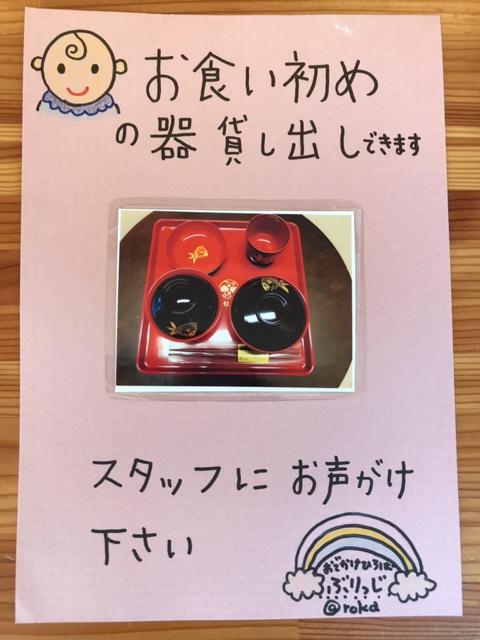 お食い初め
の器 貸し出しできます
スタッフに お声がけ
下さい
おでかけひろば
ぶりっじ
@roka